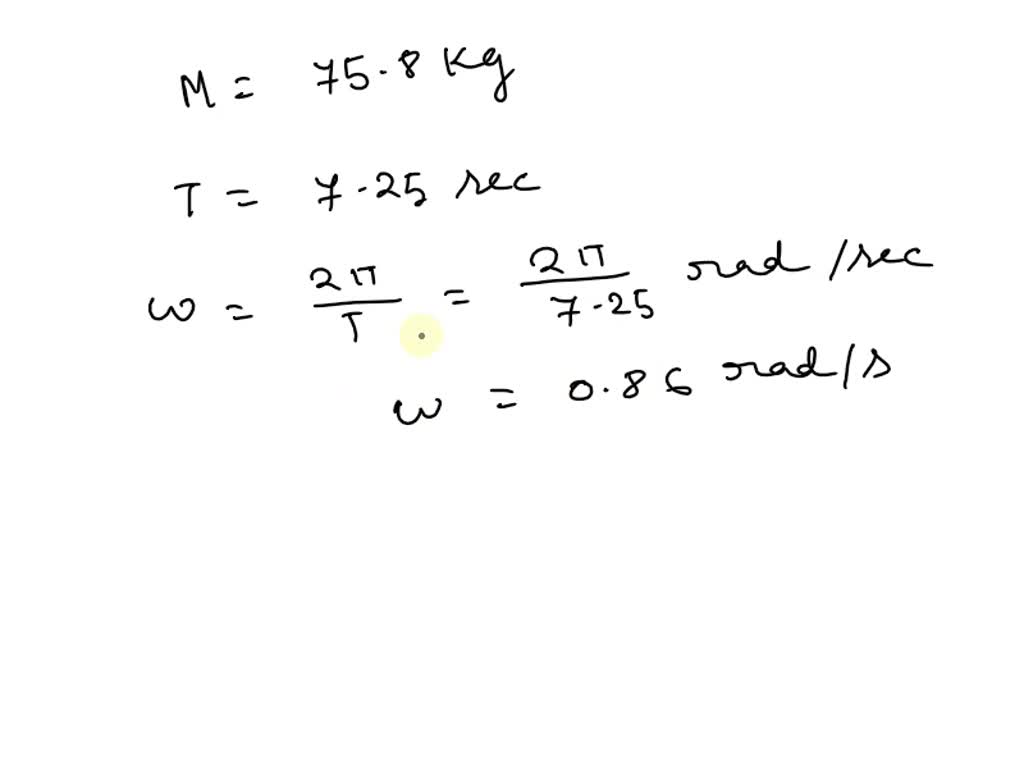 M = 75.8 Kg
T = 7.25 sec
ω = 2π/T = 2π/7.25 rad/sec
ω = 0.86 rad/s